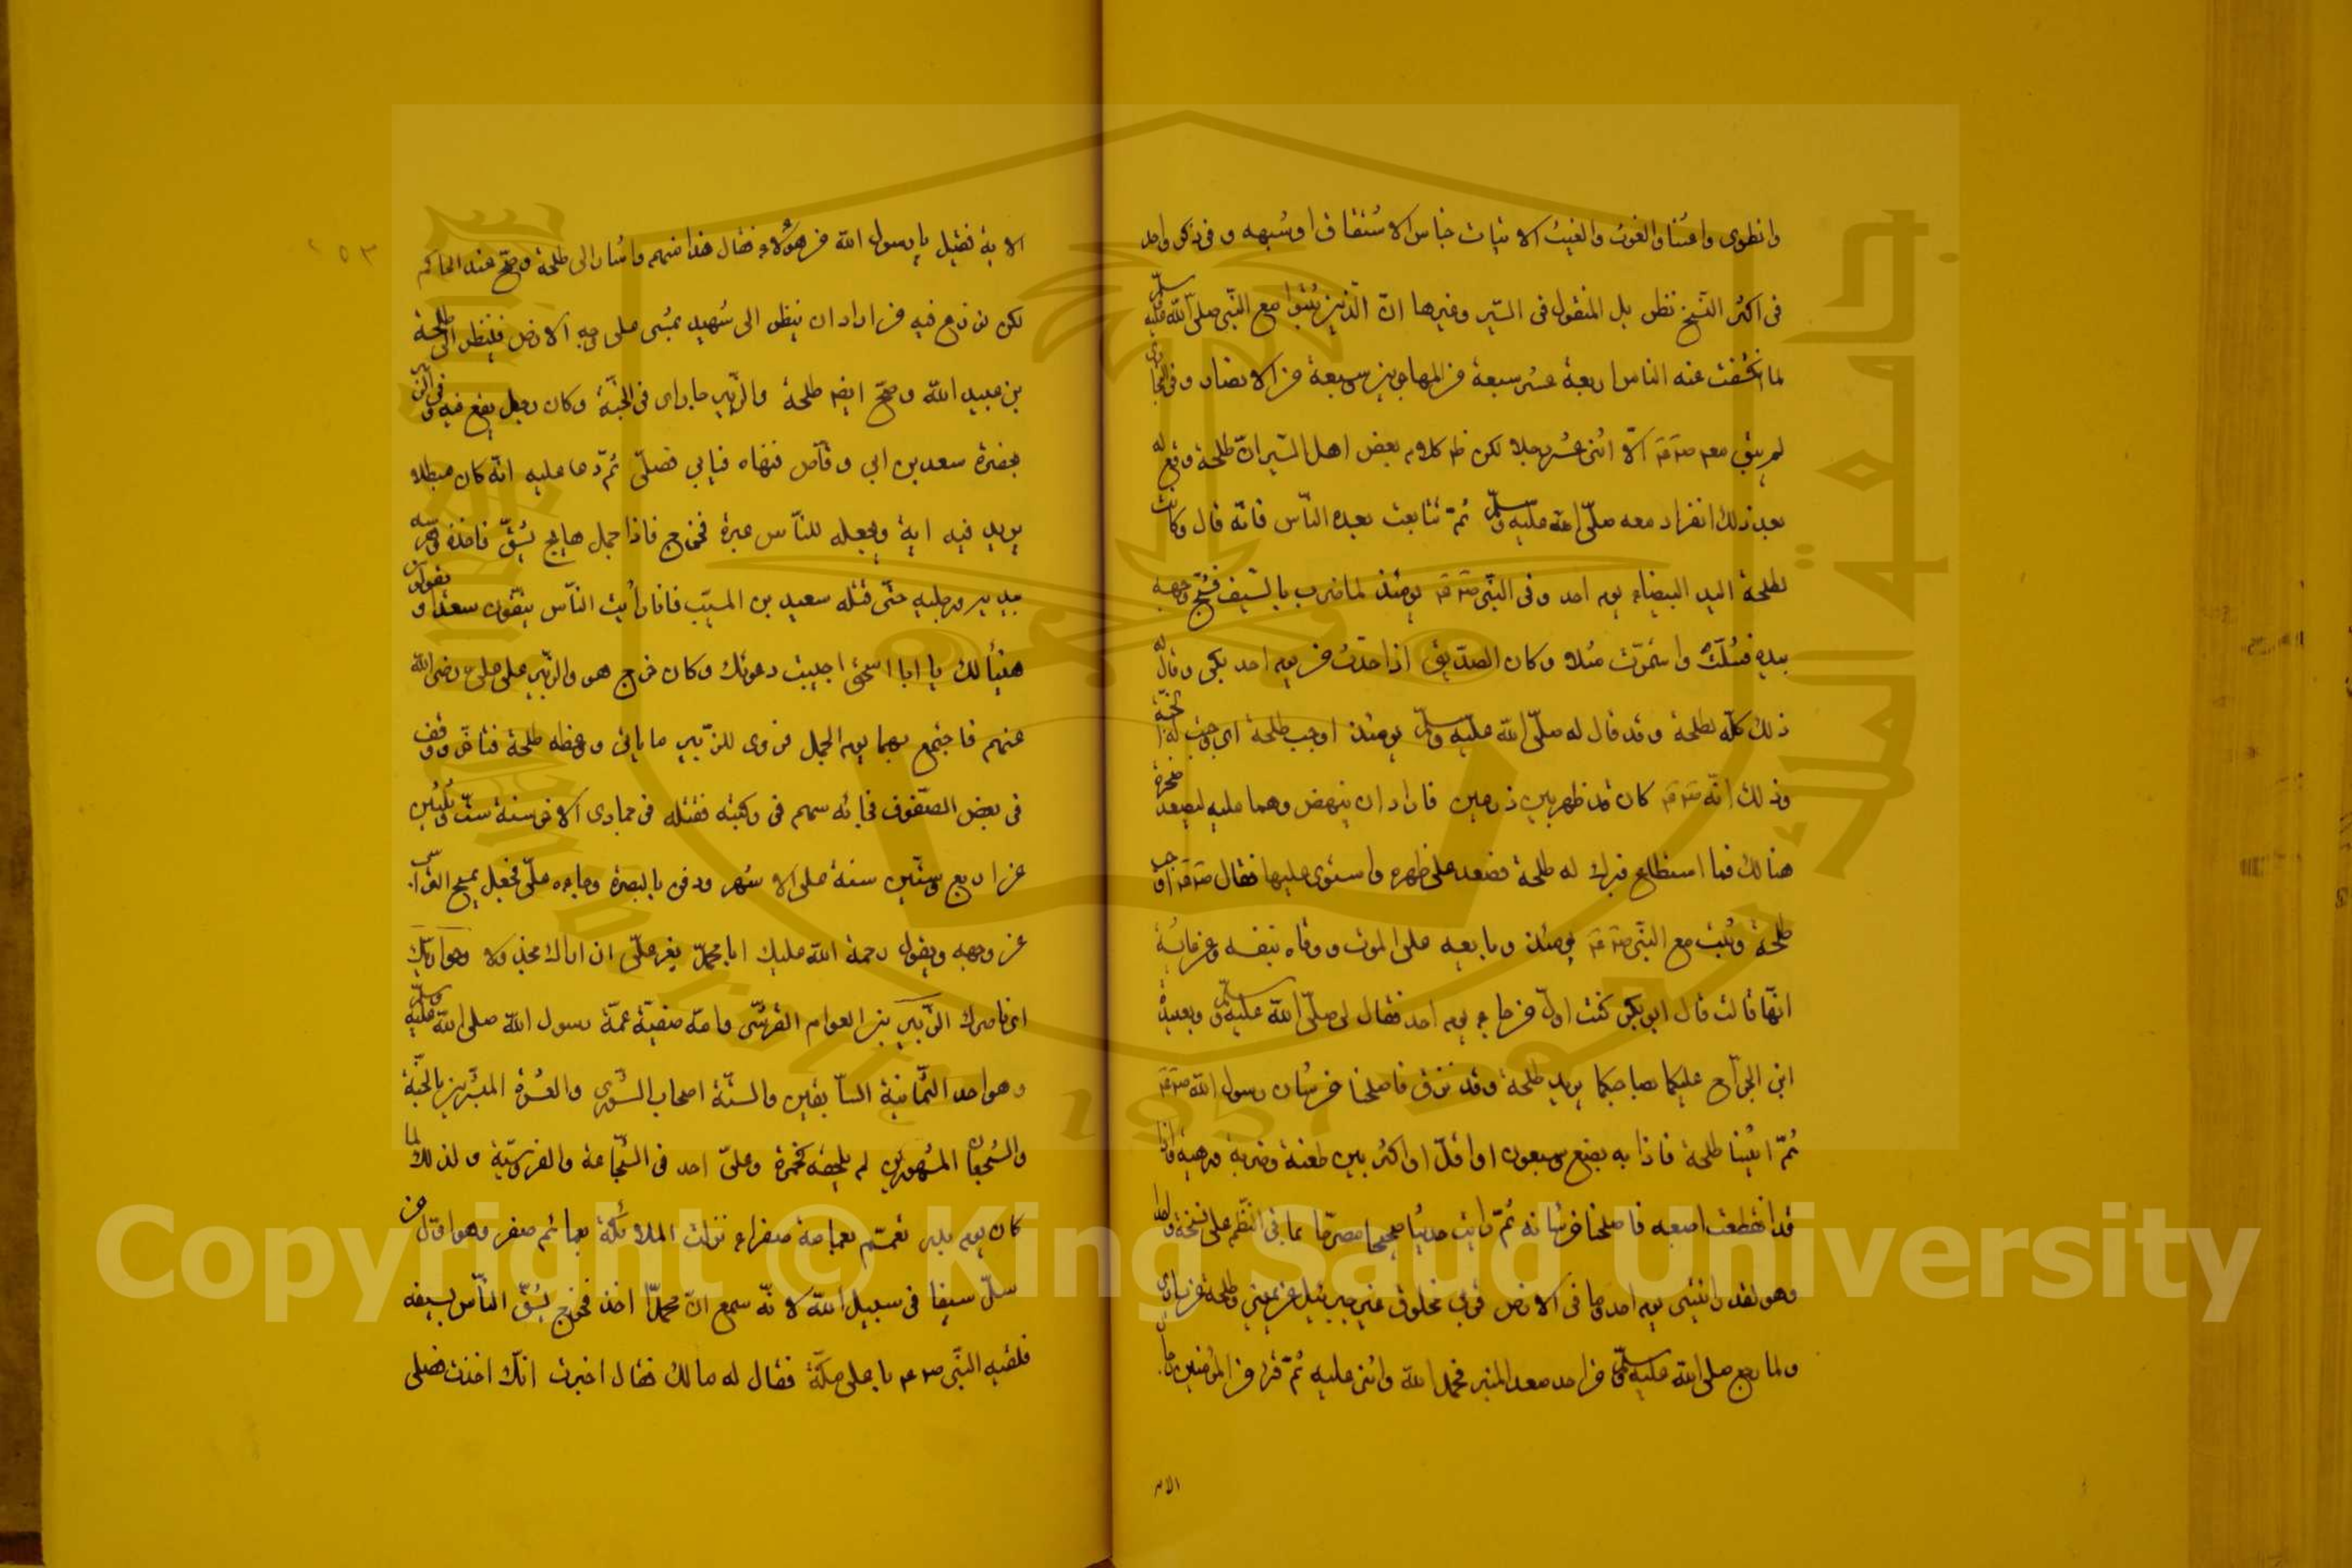 وانطوى واغثنا والغوث والغيث الاغياث جناس الاشتقاق او شبهه وفى ذكر واحد
فى اكثر النسخ نظر بل المنقول فى السير وغيرها ان الذين ثبتوا مع النبى صلى الله عليه وسلم
لما انكشفت عنه الناس اربعة عشر سبعة من المهاجرين وسبعة من الانصار وفى البخارى
لم يبق معه صم الا اثنى عشر رجلا لكن كلام بعض اهل السير ان طلحة وقع له
بعد ذلك انفراد معه صلى الله عليه وسلم ثم تتابعت بعده الناس فانه قال وكانت
لطلحة اليد البيضاء يوم احد وقى النبى يومئذ لما ضرب بالسيف فشج وجهه
بيده فشلت واستمرت شلا وكان الصديق اذا حدث عن يوم احد بكى وقال
ذلك كله لطلحة وقد قال له صلى الله عليه وسلم يومئذ اوجب طلحة اى وجبت له الجنة
وذلك انه كان قد ظهر بين درعين فاراد ان ينهض وهما عليه ليصعد صخرة
هنالك فما استطاع فبرك له طلحة فصعد على ظهره واستوى عليها فقال اوجب
طلحة وثبت مع النبى يومئذ وبايعه على الموت ووقاه بنفسه وعن عائشة
انها قالت قال ابو بكر كنت اول من جاء يوم احد فقال لى صلى الله عليه وسلم ولعبيدة
ابن الجراح عليكما بصاحبكما يريد طلحة وقد نزف فاصلحنا من شان رسول الله
ثم اتينا طلحة فاذا به بضع وسبعون او اقل او اكثر بين طعنة وضربة ورمية واذا
قد انقطعت اصبعه فاصلحنا من شانه ثم رايت حديثا صحيحا مصرحا بما فى النظم على نسخة واحد
وهو لقد رايتنى يوم احد وما فى الارض قربى مخلوق غير جبرئيل عن يمينى وطلحة عن يسارى
ولما رجع صلى الله عليه وسلم من احد صعد المنبر فحمد الله واثنى عليه ثم قرا من المؤمنين رجال
الايه
الاية فقيل يا رسول الله من هؤلاء فقال هذا منهم واشار الى طلحة وصح عند الحاكم
لكن نوزع فيه من اراد ان ينظر الى شهيد يمشى على وجه الارض فلينظر الى طلحة
بن عبيد الله وصح ايضا طلحة والزبير جاراى فى الجنة وكان رجل يقع فيه وفى الزبير
بحضرة سعد بن ابى وقاص فنهاه فيابى فصلى ثم دعا عليه انه كان مبطلا
يريد فيه اية ويجعله للناس عبرة فخرج فاذا جمل هايج يشق فاخذه وضربه
بيديه ورجليه حتى قتله سعيد بن المسيب فانا رأيت الناس يتبعون سعدا ويقولون
هنيأ لك يا ابا اسحق اجيبت دعوتك وكان خرج هو والزبير على على رضى الله
عنهم فاجتمع بهما يوم الجمل فروى للزبير ما ياتى ووعظه طلحة فتاخر ووقف
فى بعض الصفوف فجائه سهم فى ركبته فقتله فى جمادى الاخر سنة ست وثلثين
عن اربع وستين سنة على الاشهر ودفن بالبصرة وجاءه على فجعل يمسح التراب
عن وجهه ويقول رحمة الله عليك ابا محمد يعز على ان اراك مجذولا وحواريك
اى ناصرك الزبير بن العوام القرشى وامه صفية عمة رسول الله صلى الله عليه وسلم
وهو احد الثمانية السابقين والستة اصحاب الشورى والعشرة المبشرين بالجنة
والشجعان المشهورين لم يلحقه كحمزة وعلى احد فى الشجاعة والفروسية ولذلك لما
كان يوم بدر تعمم بعمامة صفراء نزلت الملائكة بعمائم صفر وهو اول من
سل سيفا فى سبيل الله لانه سمع ان محمدا اخذ فخرج يشق الناس بسيفه
فلقيه النبى صم باعلى مكة فقال له مالك فقال اخبرت انك اخذت فصلى
٢٥٣
Copyright © King Saud University
1957